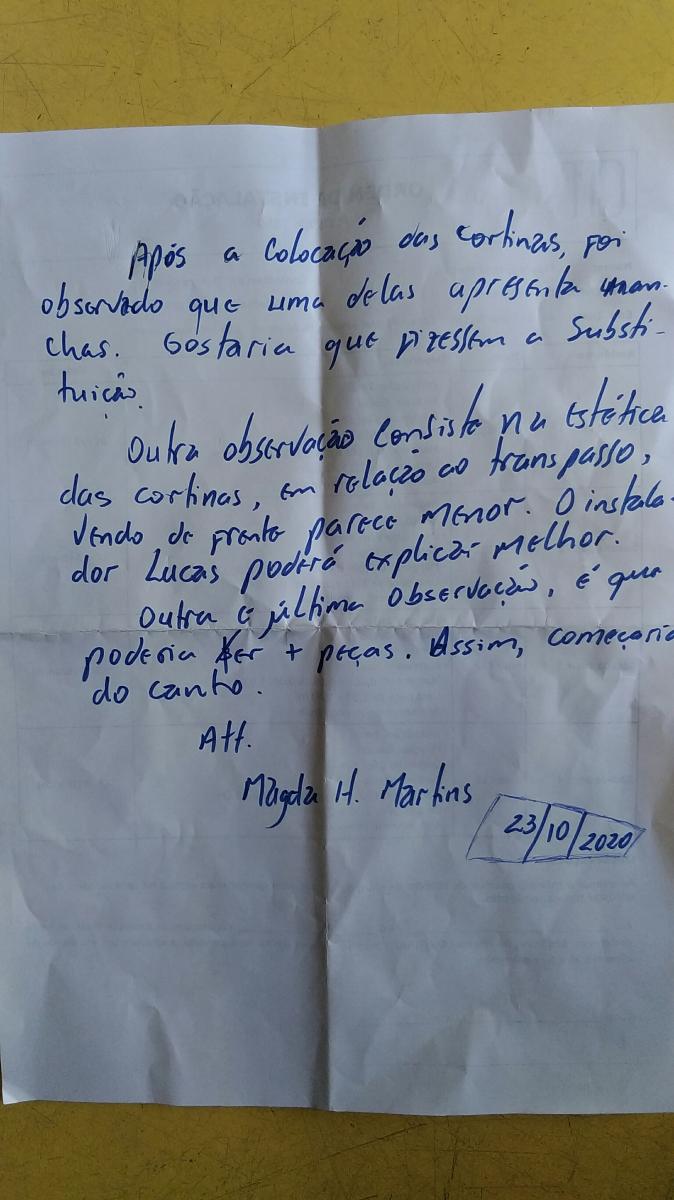 Após a colocação das cortinas, foi
observado que uma delas apresenta man-
chas. Gostaria que fizessem a substi-
tuição.
Outra observação consiste na estética
das cortinas, em relação ao transpasso,
vendo de frente parece menor. O instala-
dor Lucas poderá explicar melhor.
Outra e última observação, é que
poderia ter + peças. Assim, começaria
do canto.
Att.
Magda H. Martins
23/10/2020
ORDEM DE INSTALAÇÃO